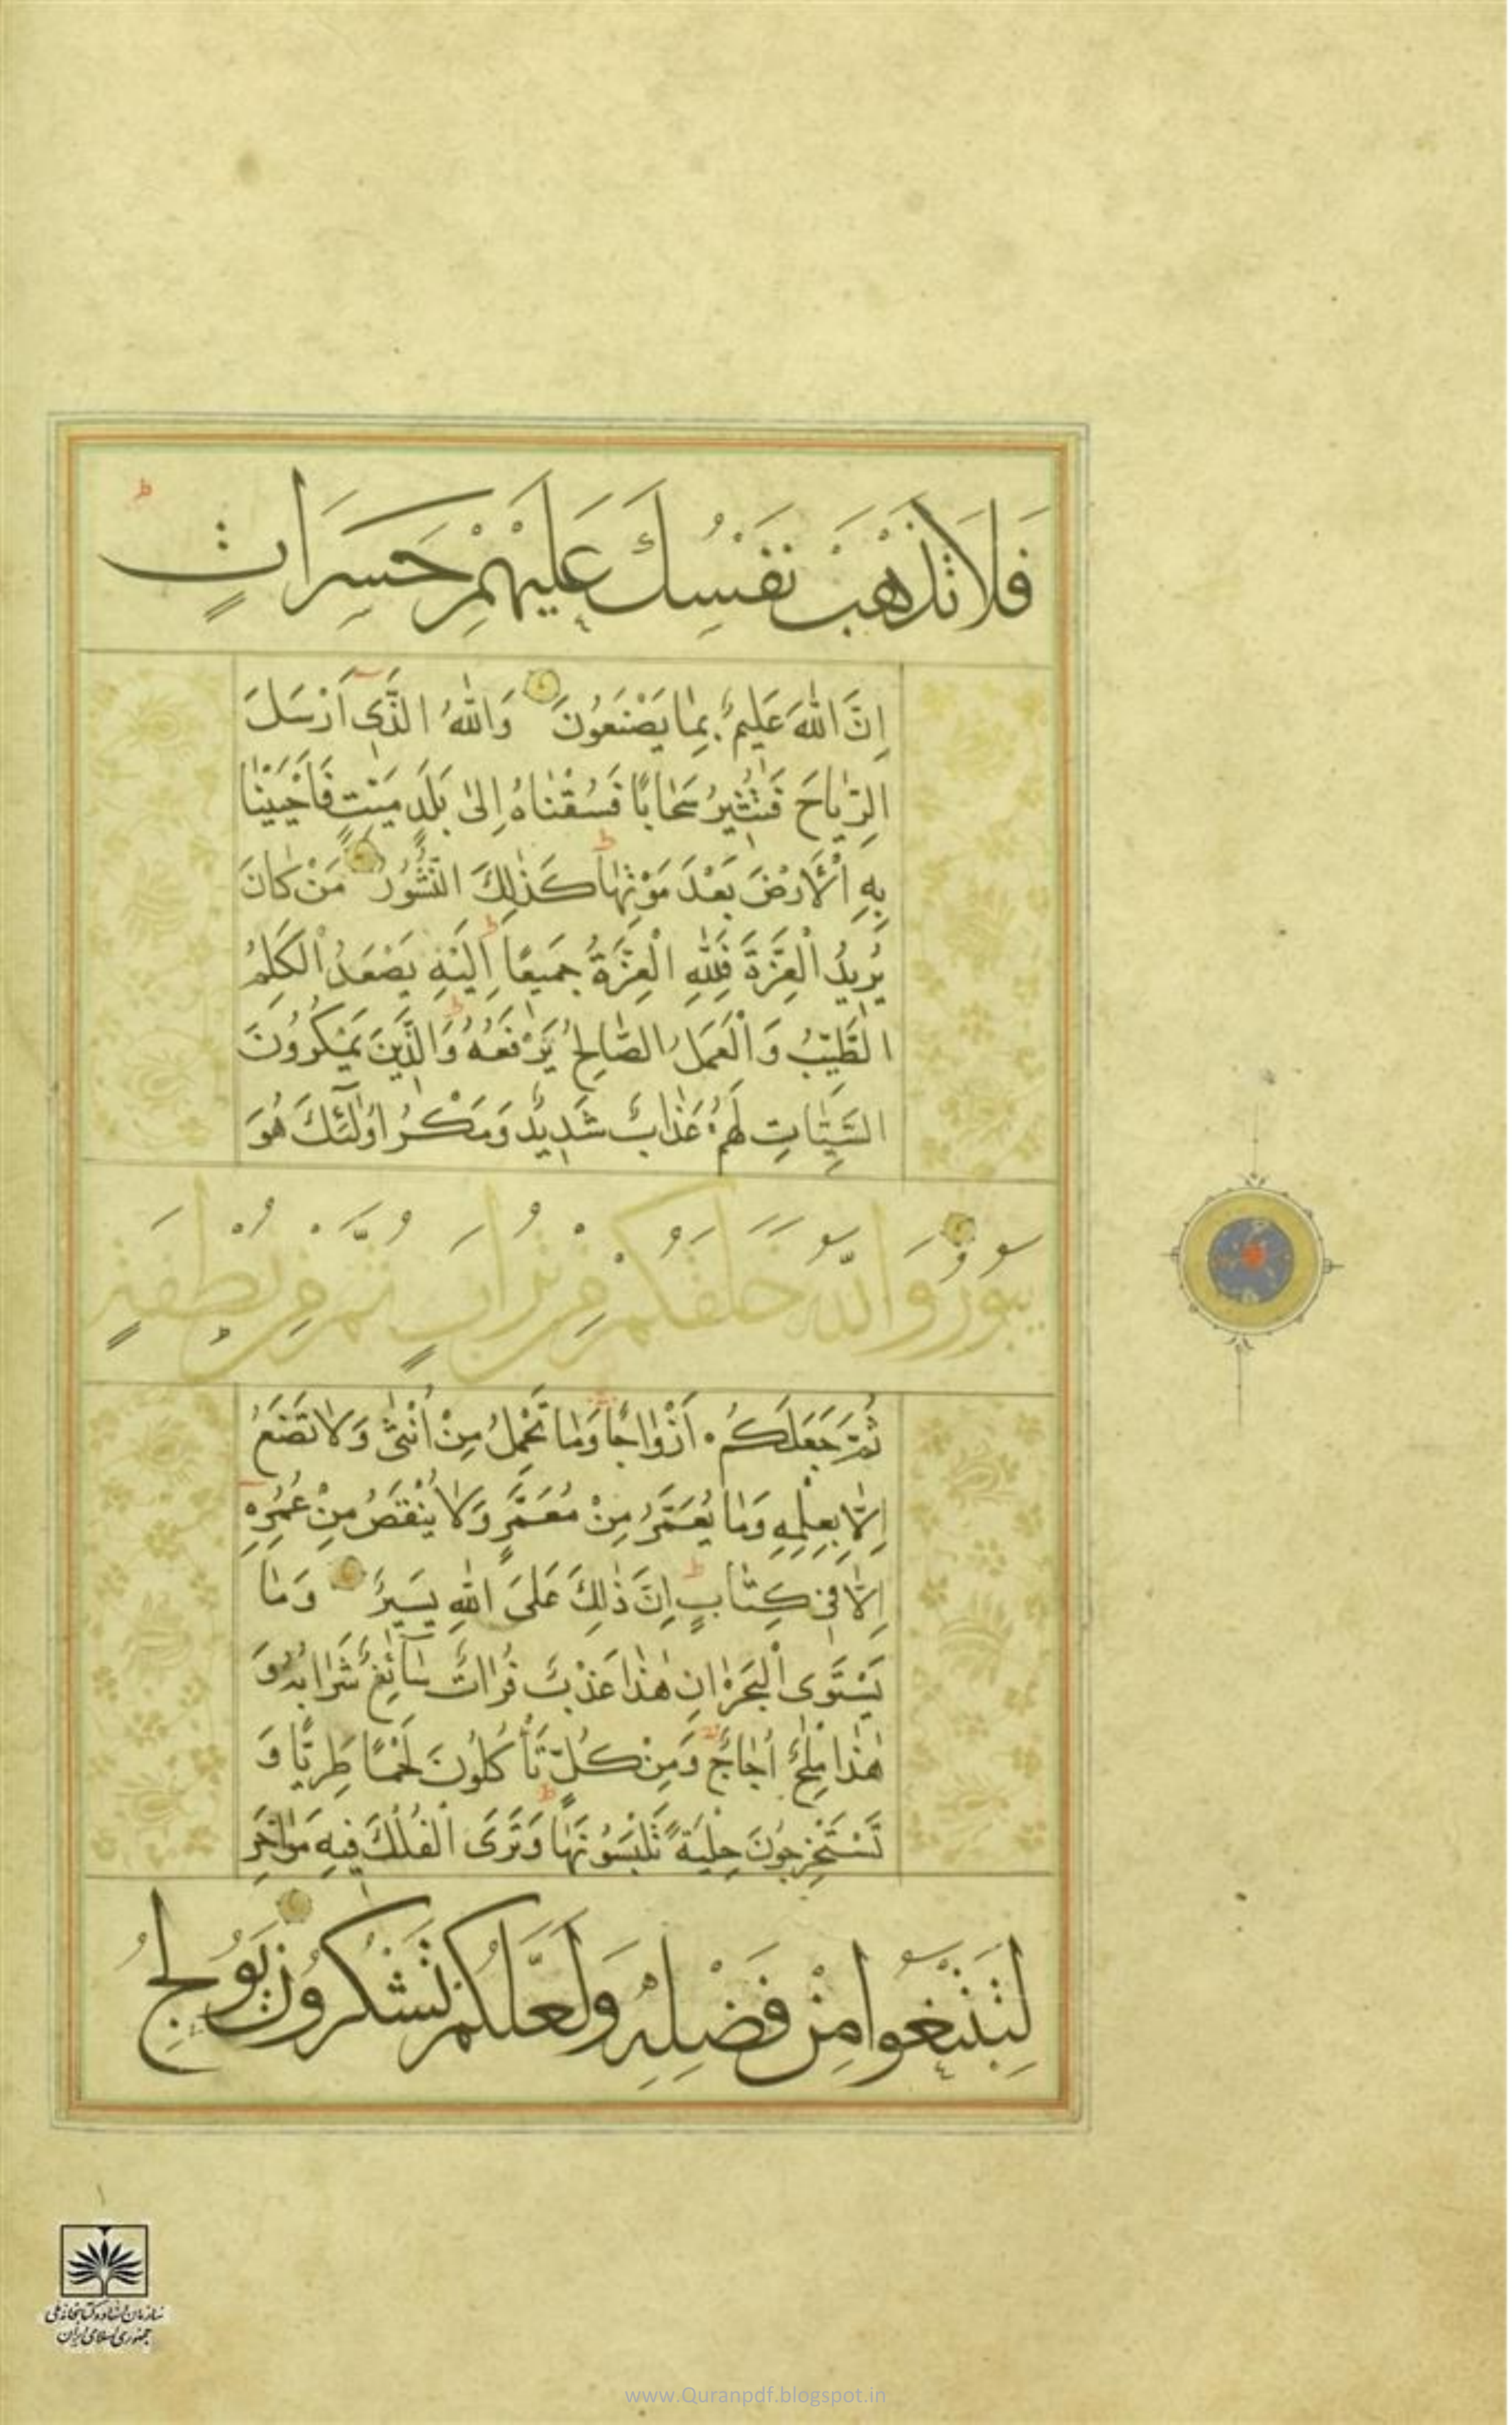 فَلَا تَذْهَبْ نَفْسُكَ عَلَيْهِمْ حَسَرَاتٍ ط
اِنَّ اللّٰهَ عَلِيمٌ بِمٰا يَصْنَعُونَ وَاللّٰهُ الَّذٖى اَرْسَلَ
الرِّيٰاحَ فَتُثٖيرُ سَحٰابًا فَسُقْنٰاهُ اِلىٰ بَلَدٍ مَيِّتٍ فَاَحْيَيْنٰا
بِهِ الْاَرْضَ بَعْدَ مَوْتِهٰا ط كَذٰلِكَ النُّشُورُ مَنْ كٰانَ
يُرٖيدُ الْعِزَّةَ فَلِلّٰهِ الْعِزَّةُ جَمٖيعًا ط اِلَيْهِ يَصْعَدُ الْكَلِمُ
الطَّيِّبُ وَالْعَمَلُ الصّٰالِحُ يَرْفَعُهُ ط وَالَّذٖينَ يَمْكُرُونَ
السَّيِّئٰاتِ لَهُمْ عَذٰابٌ شَدٖيدٌ وَمَكْرُ اُولٰٓئِكَ هُوَ
يَبُورُ وَاللّٰهُ خَلَقَكُمْ مِنْ تُرَابٍ ثُمَّ مِنْ نُطْفَةٍ
ثُمَّ جَعَلَكُمْ اَزْوٰاجًا وَمٰا تَحْمِلُ مِنْ اُنْثىٰ وَلٰا تَضَعُ
اِلّٰا بِعِلْمِهِ وَمٰا يُعَمَّرُ مِنْ مُعَمَّرٍ وَلٰا يُنْقَصُ مِنْ عُمُرِهِ
اِلّٰا فٖى كِتٰابٍ ط اِنَّ ذٰلِكَ عَلَى اللّٰهِ يَسٖيرٌ وَمٰا
يَسْتَوِى الْبَحْرٰانِ هٰذٰا عَذْبٌ فُرٰاتٌ سٰٓائِغٌ شَرٰابُهُ وَ
هٰذٰا مِلْحٌ اُجٰاجٌ وَمِنْ كُلٍّ تَأْكُلُونَ لَحْمًا طَرِيًّا وَ
تَسْتَخْرِجُونَ حِلْيَةً تَلْبَسُونَهٰا ط وَتَرَى الْفُلْكَ فٖيهِ مَوٰاخِرَ
لِتَبْتَغُوا مِنْ فَضْلِهِ وَلَعَلَّكُمْ تَشْكُرُونَ يُولِجُ
سازمان اسناد و کتابخانه ملی
جمهوری اسلامی ایران
www.Quranpdf.blogspot.in